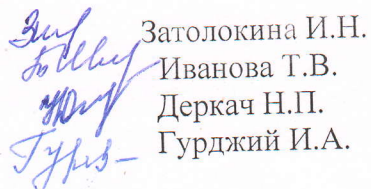 Затолокина И.Н.
Иванова Т.В.
Деркач Н.П.
Гурджий И.А.